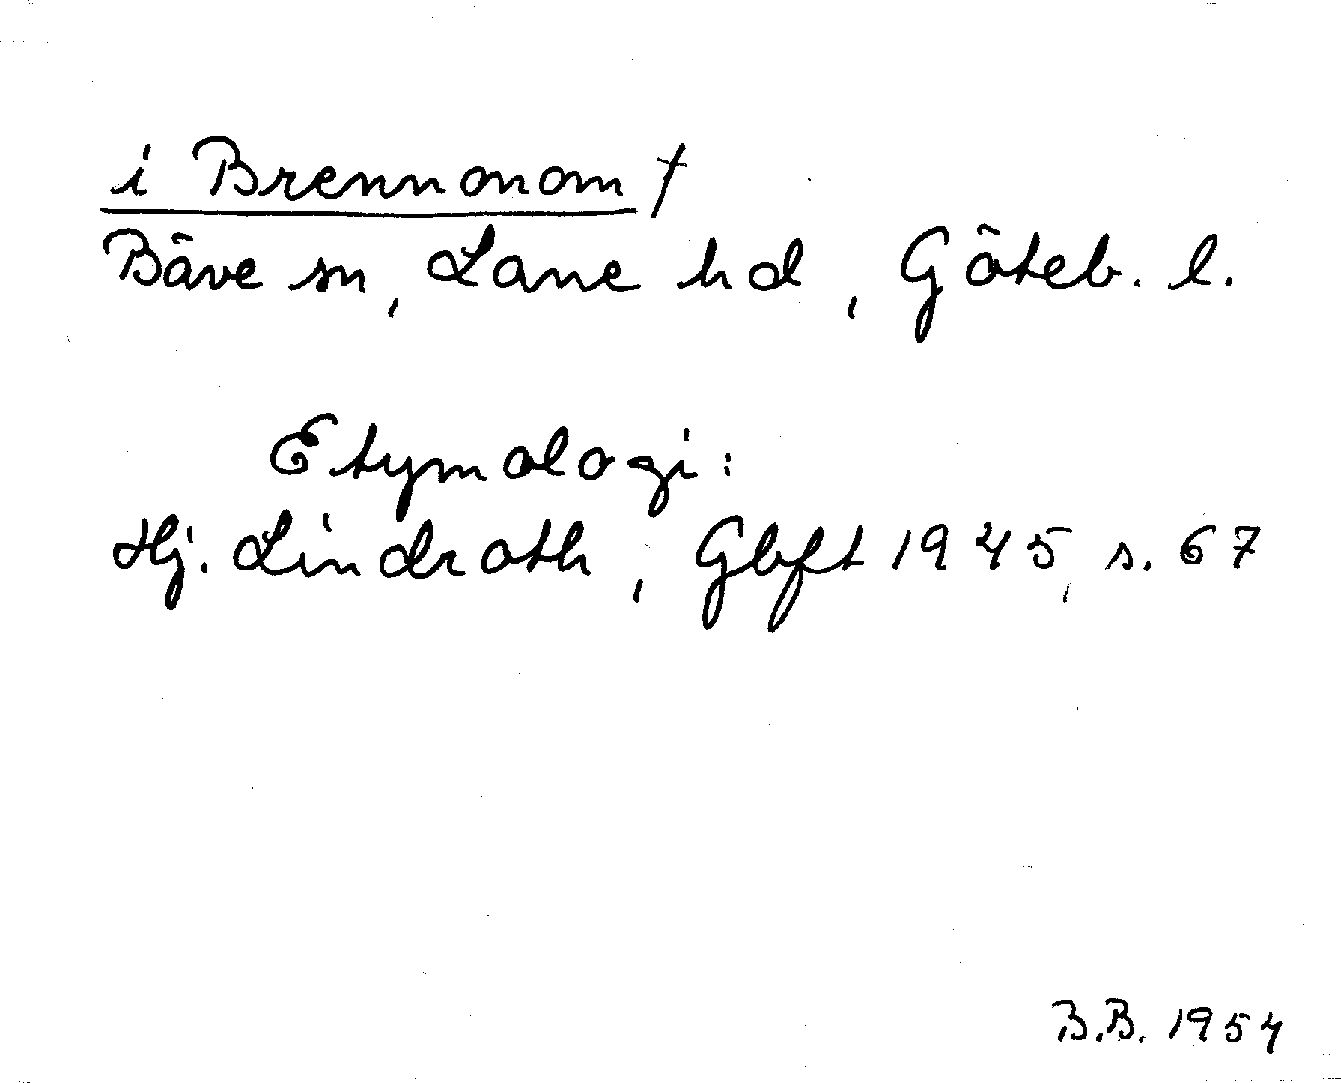 i Brennonom †
Bäve sn, Lane hd, Göteb. l.
Etymologi:
Hj. Lindroth, Gbft 1945, s. 67
B.B. 1954